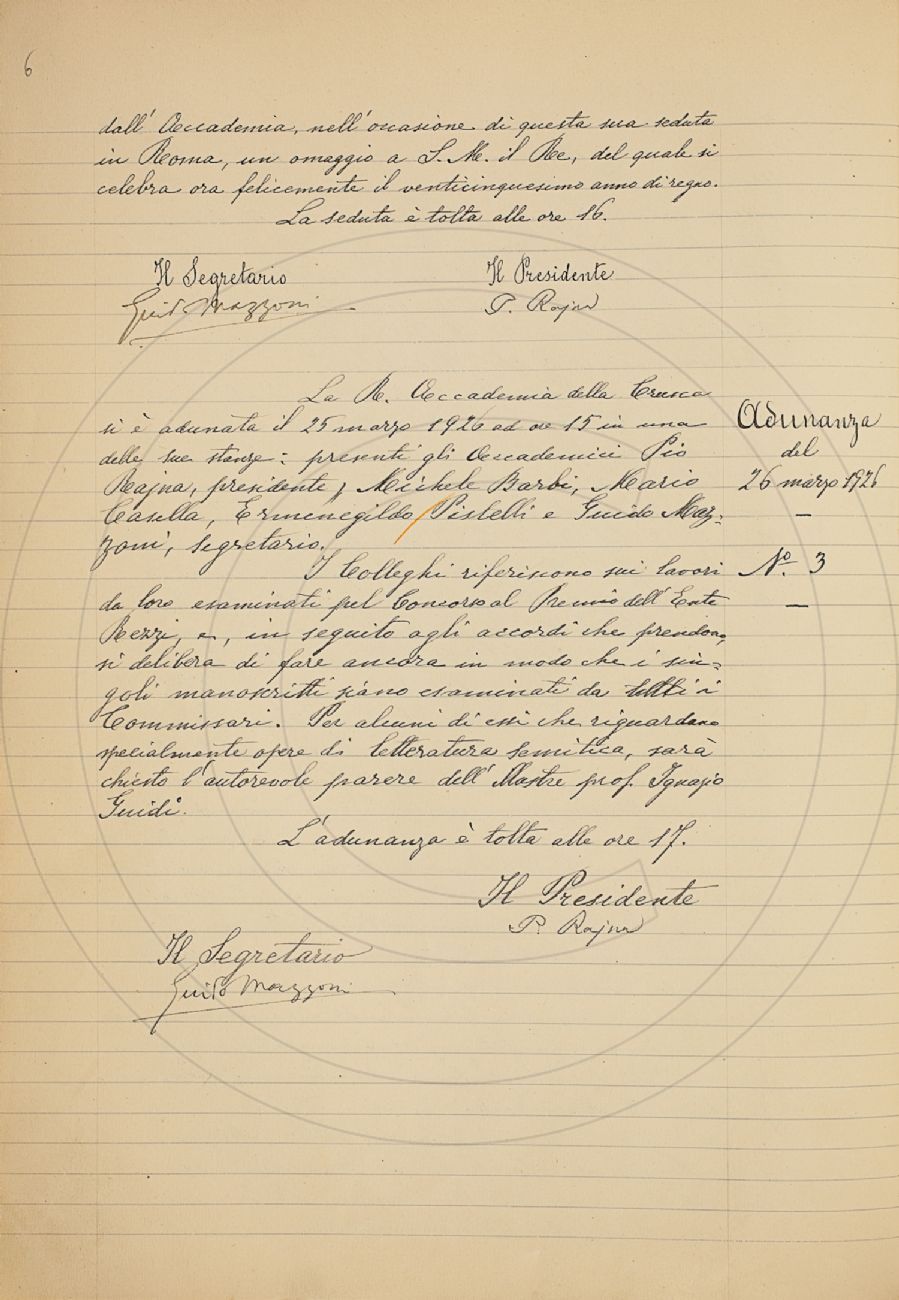 6
dall'Accademia, nell'occasione di questa sua seduta
in Roma, un omaggio a S. M. il Re, del quale si
celebra ora felicemente il venticinquesimo anno di regno.
La seduta è tolta alle ore 16.
Il Segretario
Guido Mazzoni
Il Presidente
P. Rajna
La R. Accademia della Crusca
si è adunata il 25 marzo 1926 ad ore 15 in una
delle sue stanze: presenti gli Accademici Pio
Rajna, presidente, Michele Barbi, Mario
Casella, Ermenegildo Pistelli e Guido Maz-
zoni, segretario.
Adunanza
del
26 marzo 1926
—
N.º 3
—
I Colleghi riferiscono sui lavori
da loro esaminati pel Concorso al Premio dell'Ente
Rezzi, e, in seguito agli accordi che prendono,
si delibera di fare ancora in modo che i sin=
goli manoscritti siano esaminati da tutti i
Commissari. Per alcuni di essi che riguardano
specialmente opere di letteratura semitica, sarà
chiesto l'autorevole parere dell'Illustre prof. Ignazio
Guidi.
L'adunanza è tolta alle ore 17.
Il Presidente
P. Rajna
Il Segretario
Guido Mazzoni